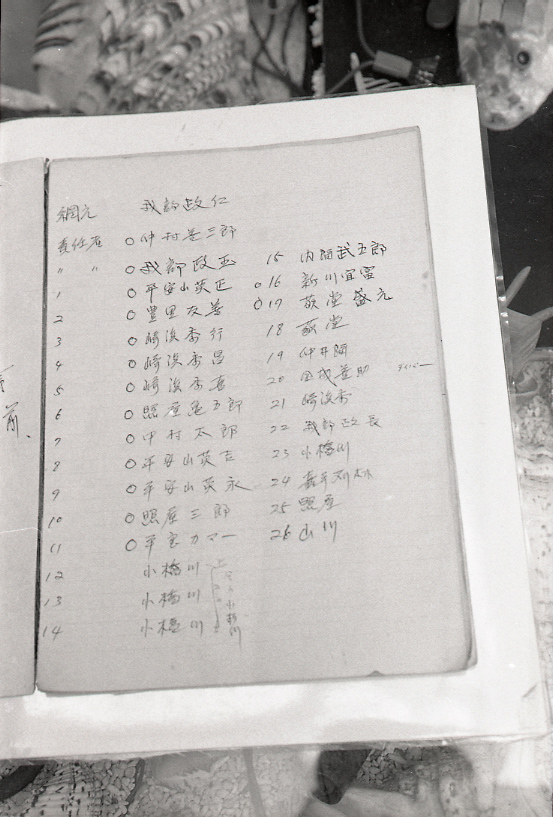 網元 我部政仁
責任者 ○仲村善三郎
〃 〃 ○我部政正
1 ○平安山英正
2 ○豊里友善
3 ○崎浜秀行
4 ○崎浜秀昌
5 ○崎浜秀喜
6 ○照屋亀五郎
7 ○中村太郎
8 ○平安山英吉
9 ○平安山英永
10 ○照屋三郎
11 ○平良カマー
12 小橋川
13 小橋川
14 小橋川
15 内間武五郎
○16 新川宜富
○17 盛元
18
19 仲井間
20 善助 ダイバー
21 崎浜秀
22 我部政長
23 小橋川
24
25 照屋
26 山川
前、